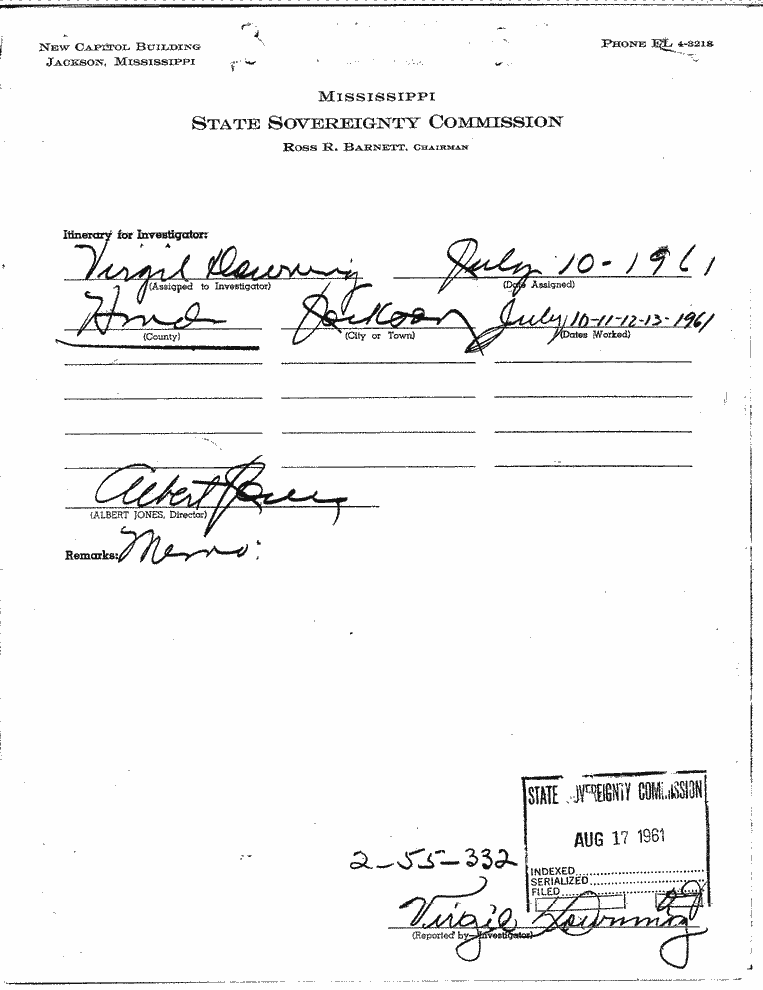 NEW CAPITOL BUILDING
JACKSON, MISSISSIPPI
PHONE FL 4-3218
MISSISSIPPI
STATE SOVEREIGNTY COMMISSION
ROSS R. BARNETT, CHAIRMAN
Itinerary for Investigator:
Virgil Downing July 10-1961
(Assigned to Investigator) (Date Assigned)
Hinds Jackson July 10-11-12-13-1961
(County) (City or Town) (Dates Worked)
Albert Jones
(ALBERT JONES, Director)
Remarks: Memo:
STATE SOVEREIGNTY COMMISSION
AUG 17 1961
2-55-332
INDEXED
SERIALIZED
FILED
Virgil Downing
(Reported by—Investigator)